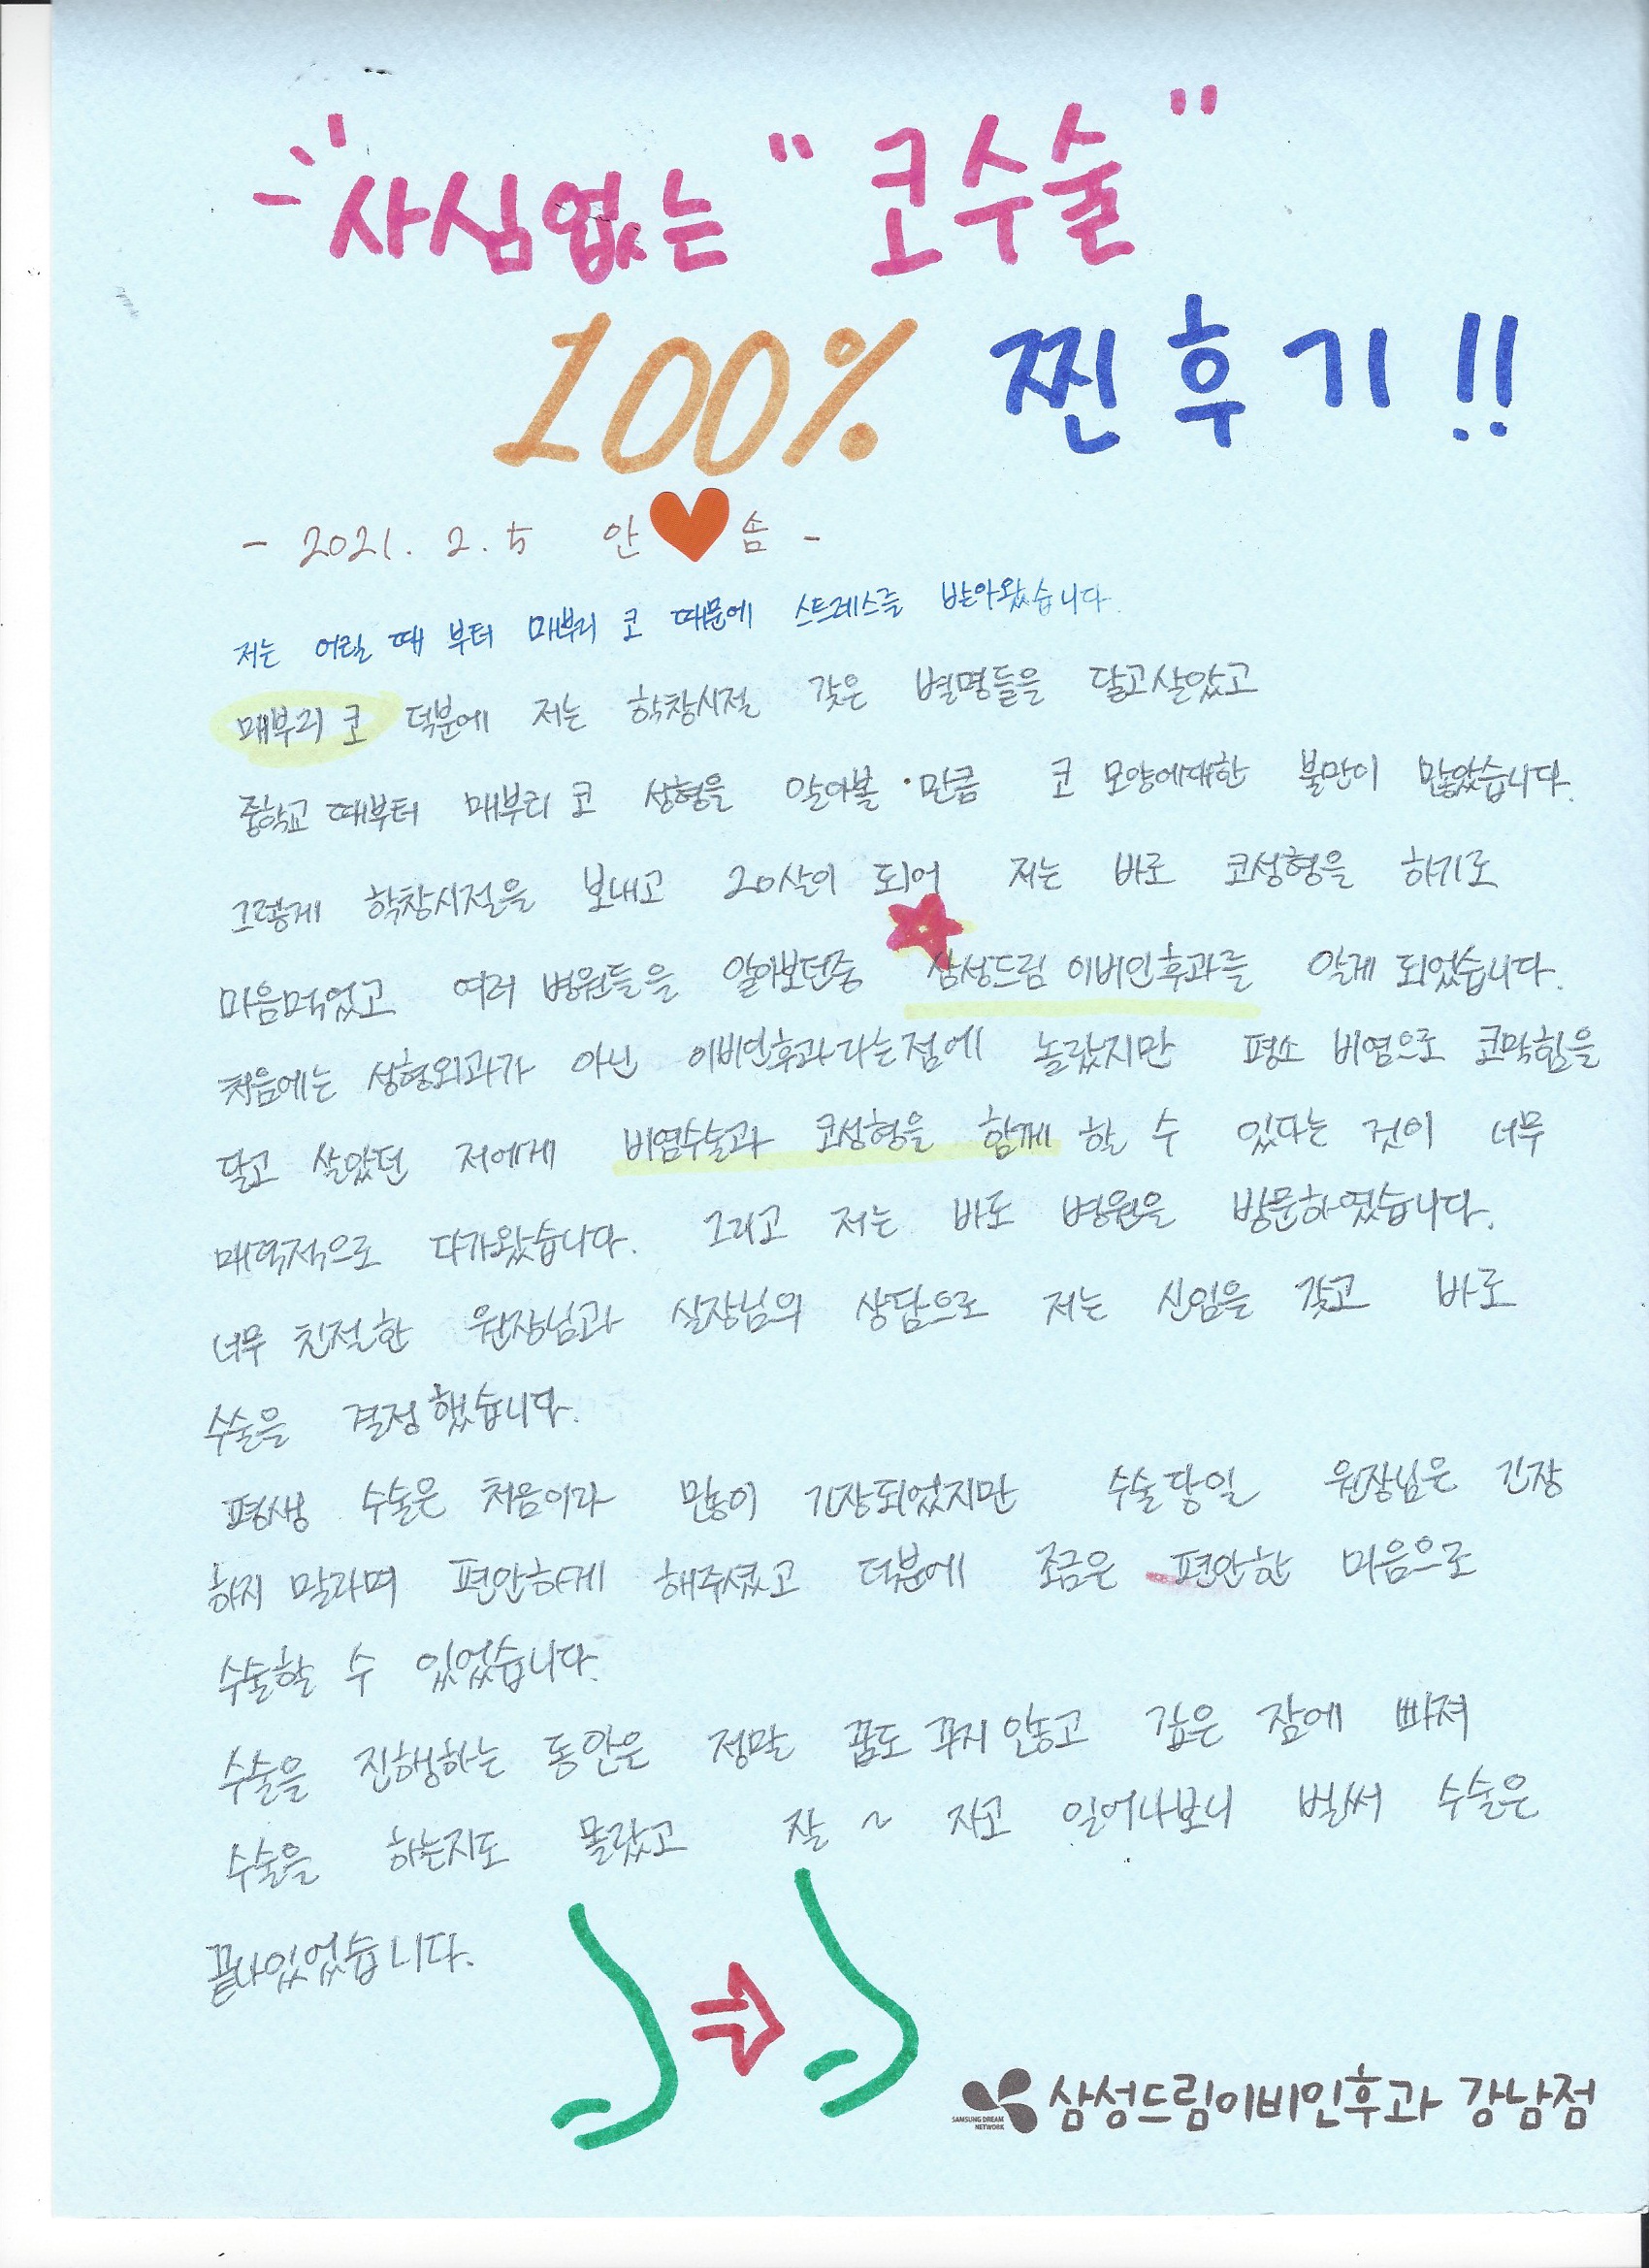 사심없는 "코수술"
100% 찐후기!!
- 2021. 2. 5 안 솜 -
저는 어릴 때 부터 매부리 코 때문에 스트레스를 받아왔습니다.
매부리 코 덕분에 저는 학창시절 갖은 별명들을 달고살았고
중학교 때부터 매부리 코 성형을 알아볼 만큼 코 모양에대한 불만이 많았습니다.
그렇게 학창시절을 보내고 20살이 되어 저는 바로 코성형을 하기로
마음먹었고 여러 병원들을 알아보던중 삼성드림 이비인후과를 알게 되었습니다.
처음에는 성형외과가 아닌 이비인후과라는점에 놀랐지만 평소 비염으로 코막힘을
달고 살았던 저에게 비염수술과 코성형을 함께 할 수 있다는 것이 너무
매력적으로 다가왔습니다. 그리고 저는 바로 병원을 방문하였습니다.
너무 친절한 원장님과 실장님의 상담으로 저는 신임을 갖고 바로
수술을 결정했습니다.
평생 수술은 처음이라 많이 긴장되었지만 수술당일 원장님은 긴장
하지 말라며 편안하게 해주셨고 덕분에 조금은 편안한 마음으로
수술할 수 있었습니다.
수술을 진행하는 동안은 정말 꿈도 꾸지 않고 깊은 잠에 빠져
수술을 하는지도 몰랐고 잘 ~ 자고 일어나보니 벌써 수술은
끝나있었습니다.
SAMSUNG DREAM
NETWORK
삼성드림이비인후과 강남점